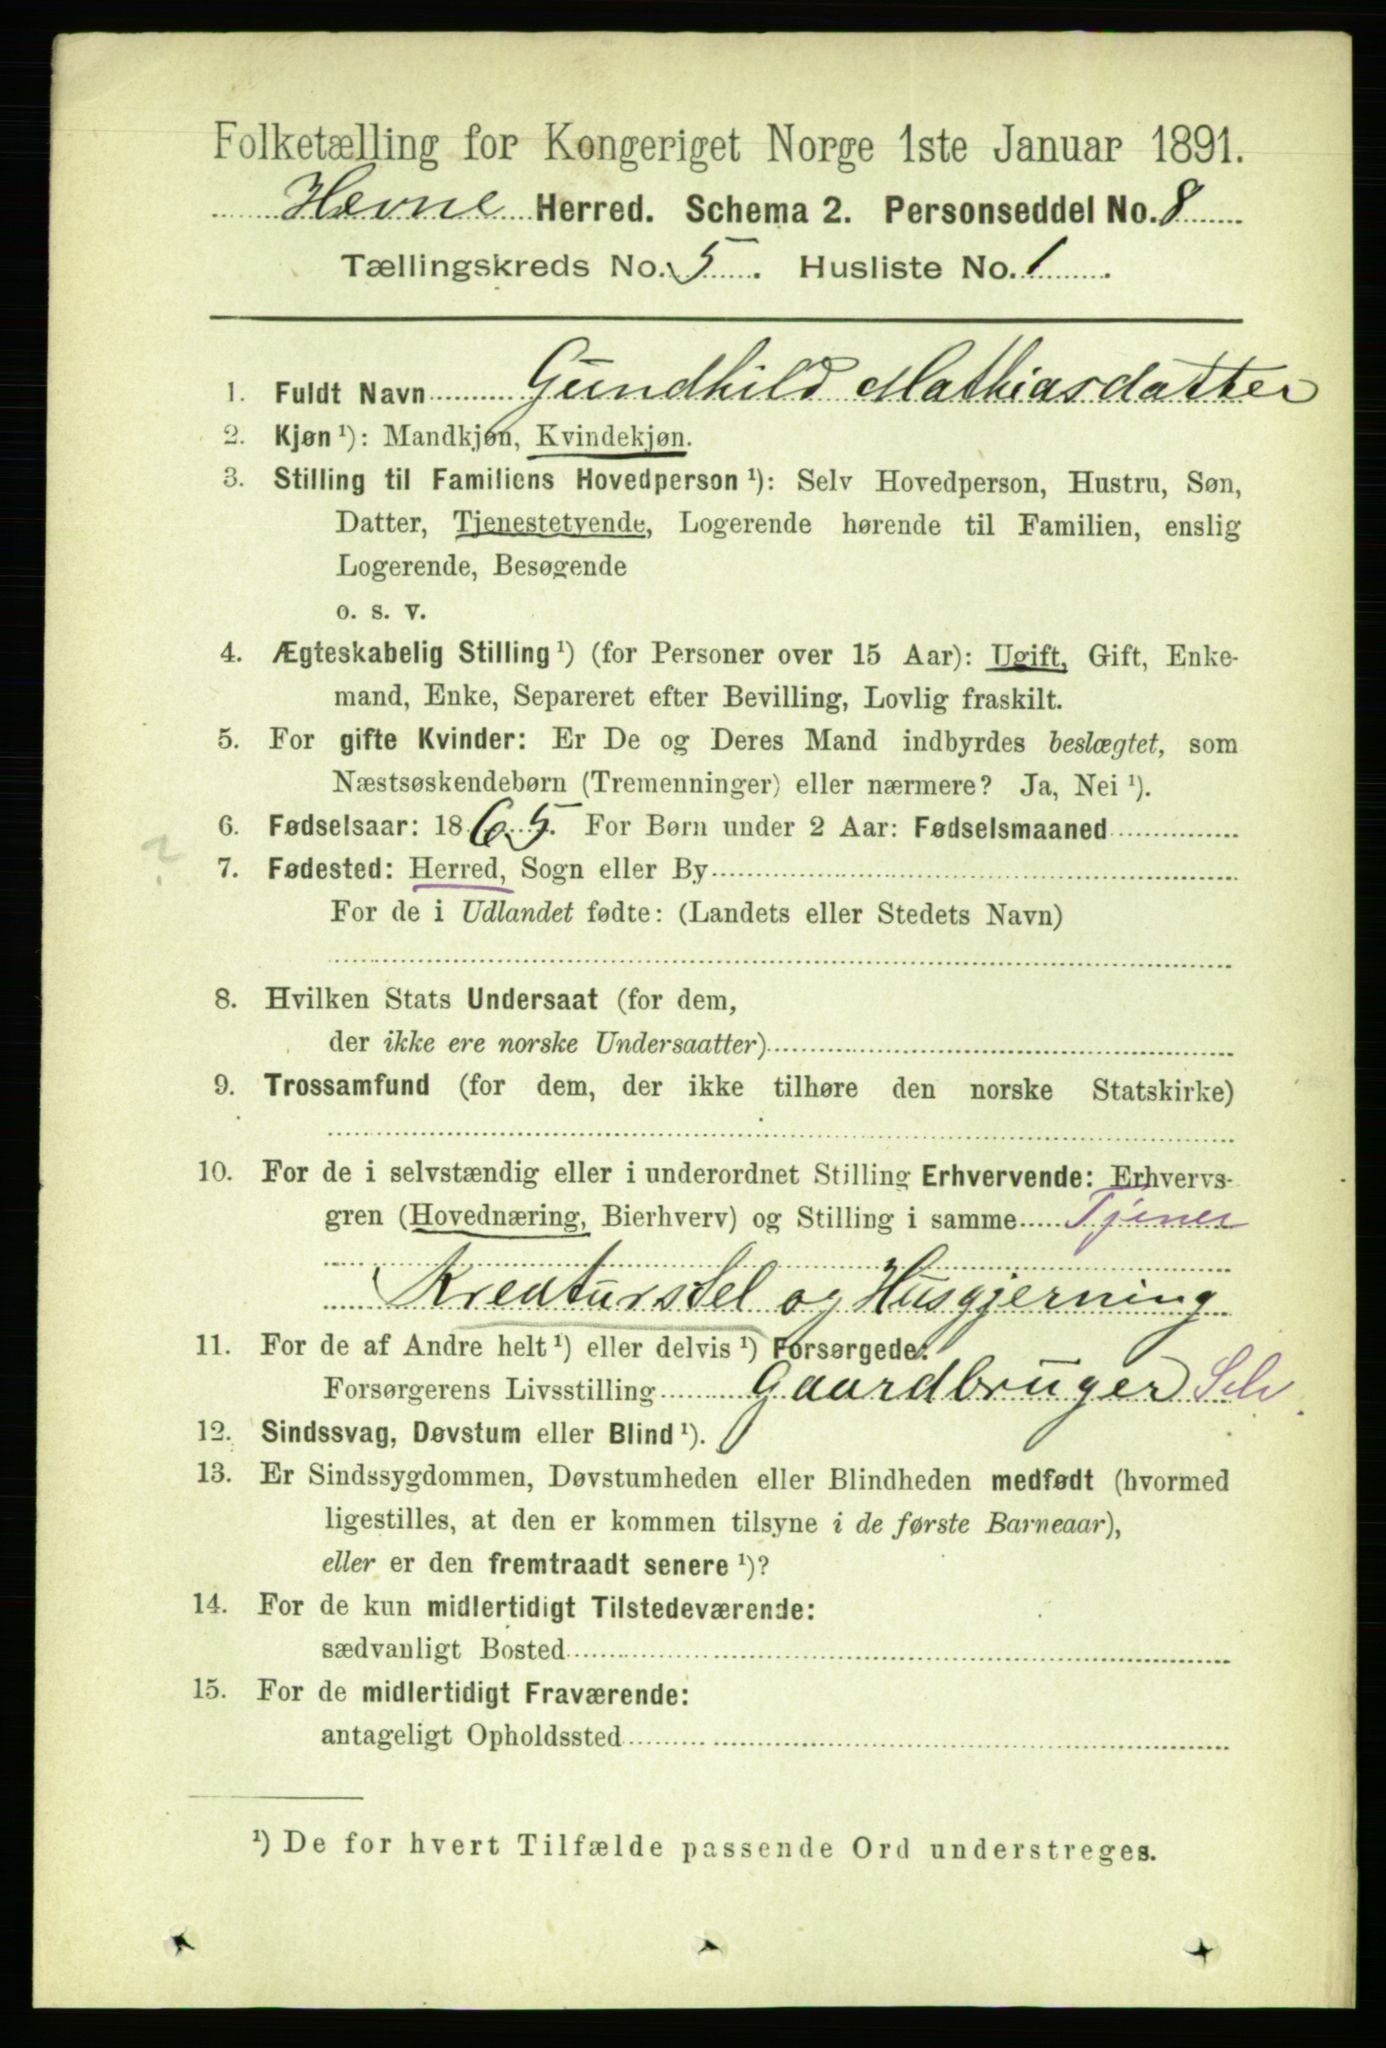 Folketælling for Kongeriget Norge 1ste Januar 1891.
Hevne Herred. Schema 2. Personseddel No. 8
Tællingskreds No. 5. Husliste No. 1.
1. Fuldt Navn Gundhild Mathiasdatter
2. Kjøn ¹): Mandkjøn, Kvindekjøn.
3. Stilling til Familiens Hovedperson ¹): Selv Hovedperson, Hustru, Søn,
Datter, Tjenestetyende, Logerende hørende til Familien, enslig
Logerende, Besøgende
o. s. v.
4. Ægteskabelig Stilling ¹) (for Personer over 15 Aar): Ugift, Gift, Enke-
mand, Enke, Separeret efter Bevilling, Lovlig fraskilt.
5. For gifte Kvinder: Er De og Deres Mand indbyrdes beslægtet, som
Næstsøskendebørn (Tremenninger) eller nærmere? Ja, Nei ¹).
6. Fødselsaar: 1865. For Børn under 2 Aar: Fødselsmaaned
? 7. Fødested: Herred, Sogn eller By
For de i Udlandet fødte: (Landets eller Stedets Navn)
8. Hvilken Stats Undersaat (for dem,
der ikke ere norske Undersaatter)
9. Trossamfund (for dem, der ikke tilhøre den norske Statskirke)
10. For de i selvstændig eller i underordnet Stilling Erhvervende: Erhvervs-
gren (Hovednæring, Bierhverv) og Stilling i samme Tjener
Kreaturstel og Husgjerning
11. For de af Andre helt ¹) eller delvis ¹) Forsørgede:
Forsørgerens Livsstilling Gaardbruger Selv
12. Sindssvag, Døvstum eller Blind ¹).
13. Er Sindssygdommen, Døvstumheden eller Blindheden medfødt (hvormed
ligestilles, at den er kommen tilsyne i de første Barneaar),
eller er den fremtraadt senere ¹)?
14. For de kun midlertidigt Tilstedeværende:
sædvanligt Bosted
15. For de midlertidigt Fraværende:
antageligt Opholdssted
¹) De for hvert Tilfælde passende Ord understreges.